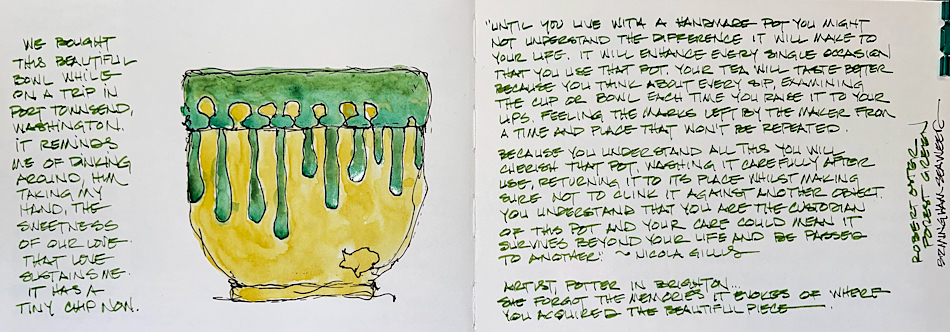 WE BOUGHT
THIS BEAUTIFUL
BOWL WHILE
ON A TRIP IN
PORT TOWNSEND,
WASHINGTON.
IT REMINDS
ME OF DINKING
AROUND, HIM
TAKING MY
HAND, THE
SWEETNESS
OF OUR LOVE.
THAT LOVE
SUSTAINS ME.
IT HAS A
TINY CHIP NOW.
"UNTIL YOU LIVE WITH A HANDMADE POT YOU MIGHT
NOT UNDERSTAND THE DIFFERENCE IT WILL MAKE TO
YOUR LIFE. IT WILL ENHANCE EVERY SINGLE OCCASION
THAT YOU USE THAT POT. YOUR TEA WILL TASTE BETTER
BECAUSE YOU THINK ABOUT EVERY SIP, EXAMINING
THE CUP OR BOWL EACH TIME YOU RAISE IT TO YOUR
LIPS. FEELING THE MARKS LEFT BY THE MAKER FROM
A TIME AND PLACE THAT WON'T BE REPEATED.
BECAUSE YOU UNDERSTAND ALL THIS YOU WILL
CHERISH THAT POT, WASHING IT CAREFULLY AFTER
USE, RETURNING IT TO ITS PLACE WHILST MAKING
SURE NOT TO CLINK IT AGAINST ANOTHER OBJECT.
YOU UNDERSTAND THAT YOU ARE THE CUSTODIAN
OF THIS POT AND YOUR CARE COULD MEAN IT
SURVIVES BEYOND YOUR LIFE AND BE PASSED
TO ANOTHER." ~ NICOLA GILLIS
ARTIST, POTTER IN BRIGHTON...
SHE FORGOT THE MEMORIES IT EVOKES OF WHERE
YOU ACQUIRED THE BEAUTIFUL PIECE
ROBERT OSTER
FOREST GREEN